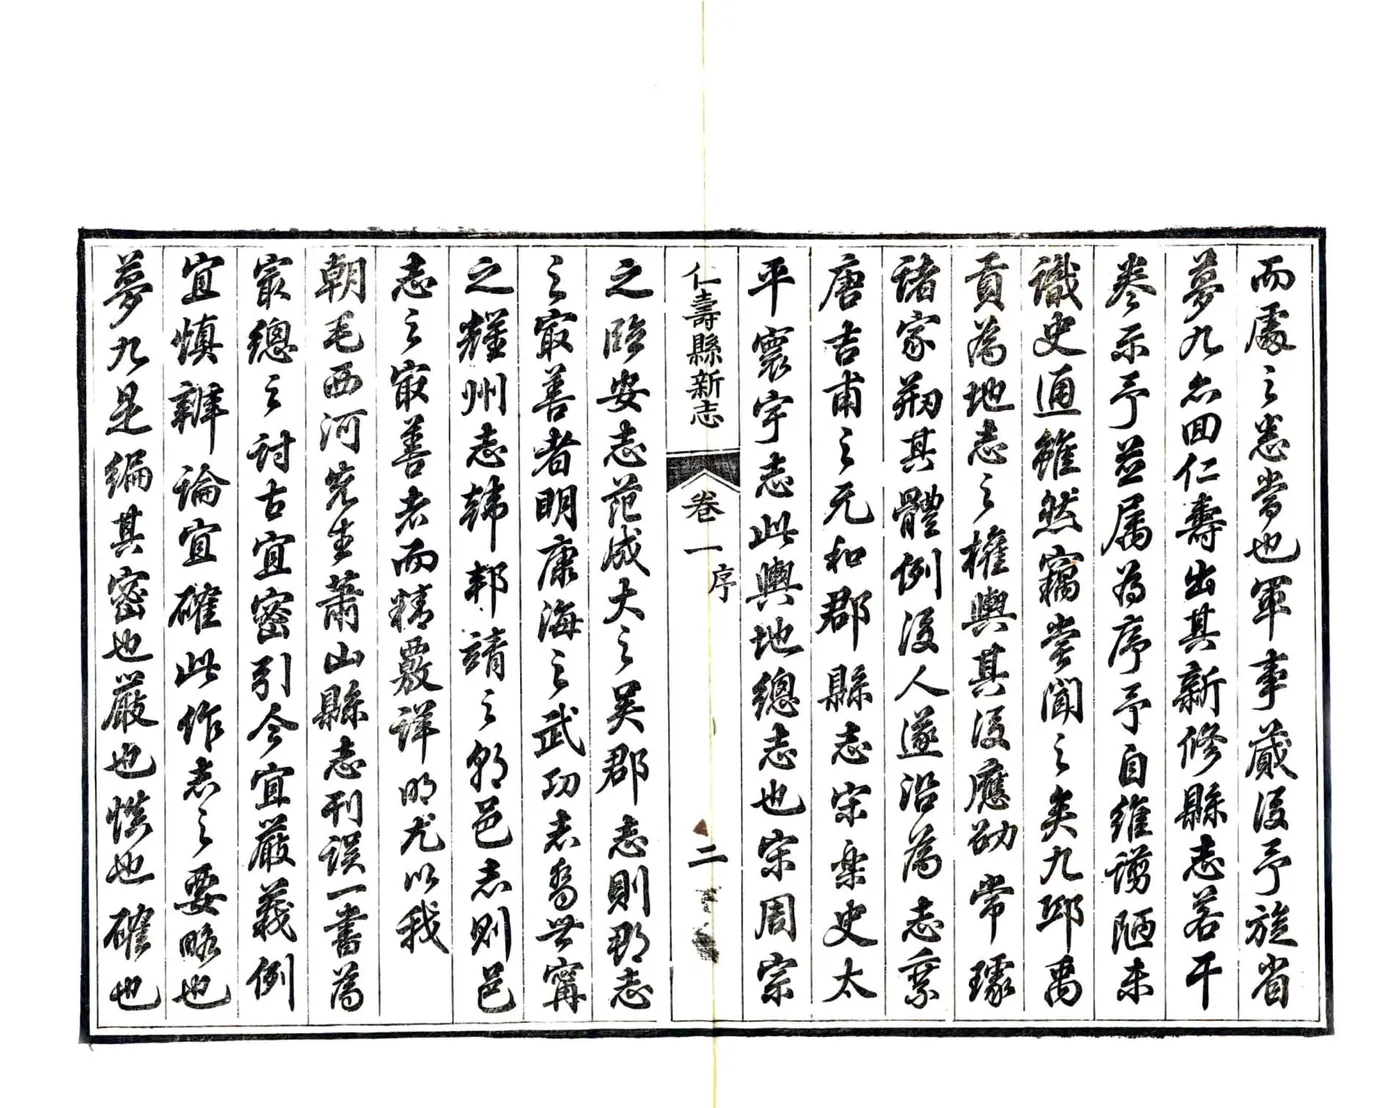 而處之悉當也軍事蕆後予旋省
夢九亦回仁壽出其新修縣志若干
卷示予並属為序予自維谫陋未
識史通雖然竊嘗聞之矣九邱禹
貢為地志之權輿其後應劭常璩
諸家剏其體例後人遂沿為志乘
唐吉甫之元和郡縣志宋樂史太
平寰宇志此輿地總志也宋周宗
仁壽縣新志 卷一 序 二
之臨安志范成大之吴郡志則郡志
之最善者明康海之武功志喬世甯
之耀州志韩邦靖之朝邑志則邑
志之最善者而精覈詳明尤以我
朝毛西河先生蕭山縣志刊误一書為
最總之討古宜密引今宜嚴義例
宜慎辨論宜確此作志之要略也
夢九是編其密也嚴也慎也確也